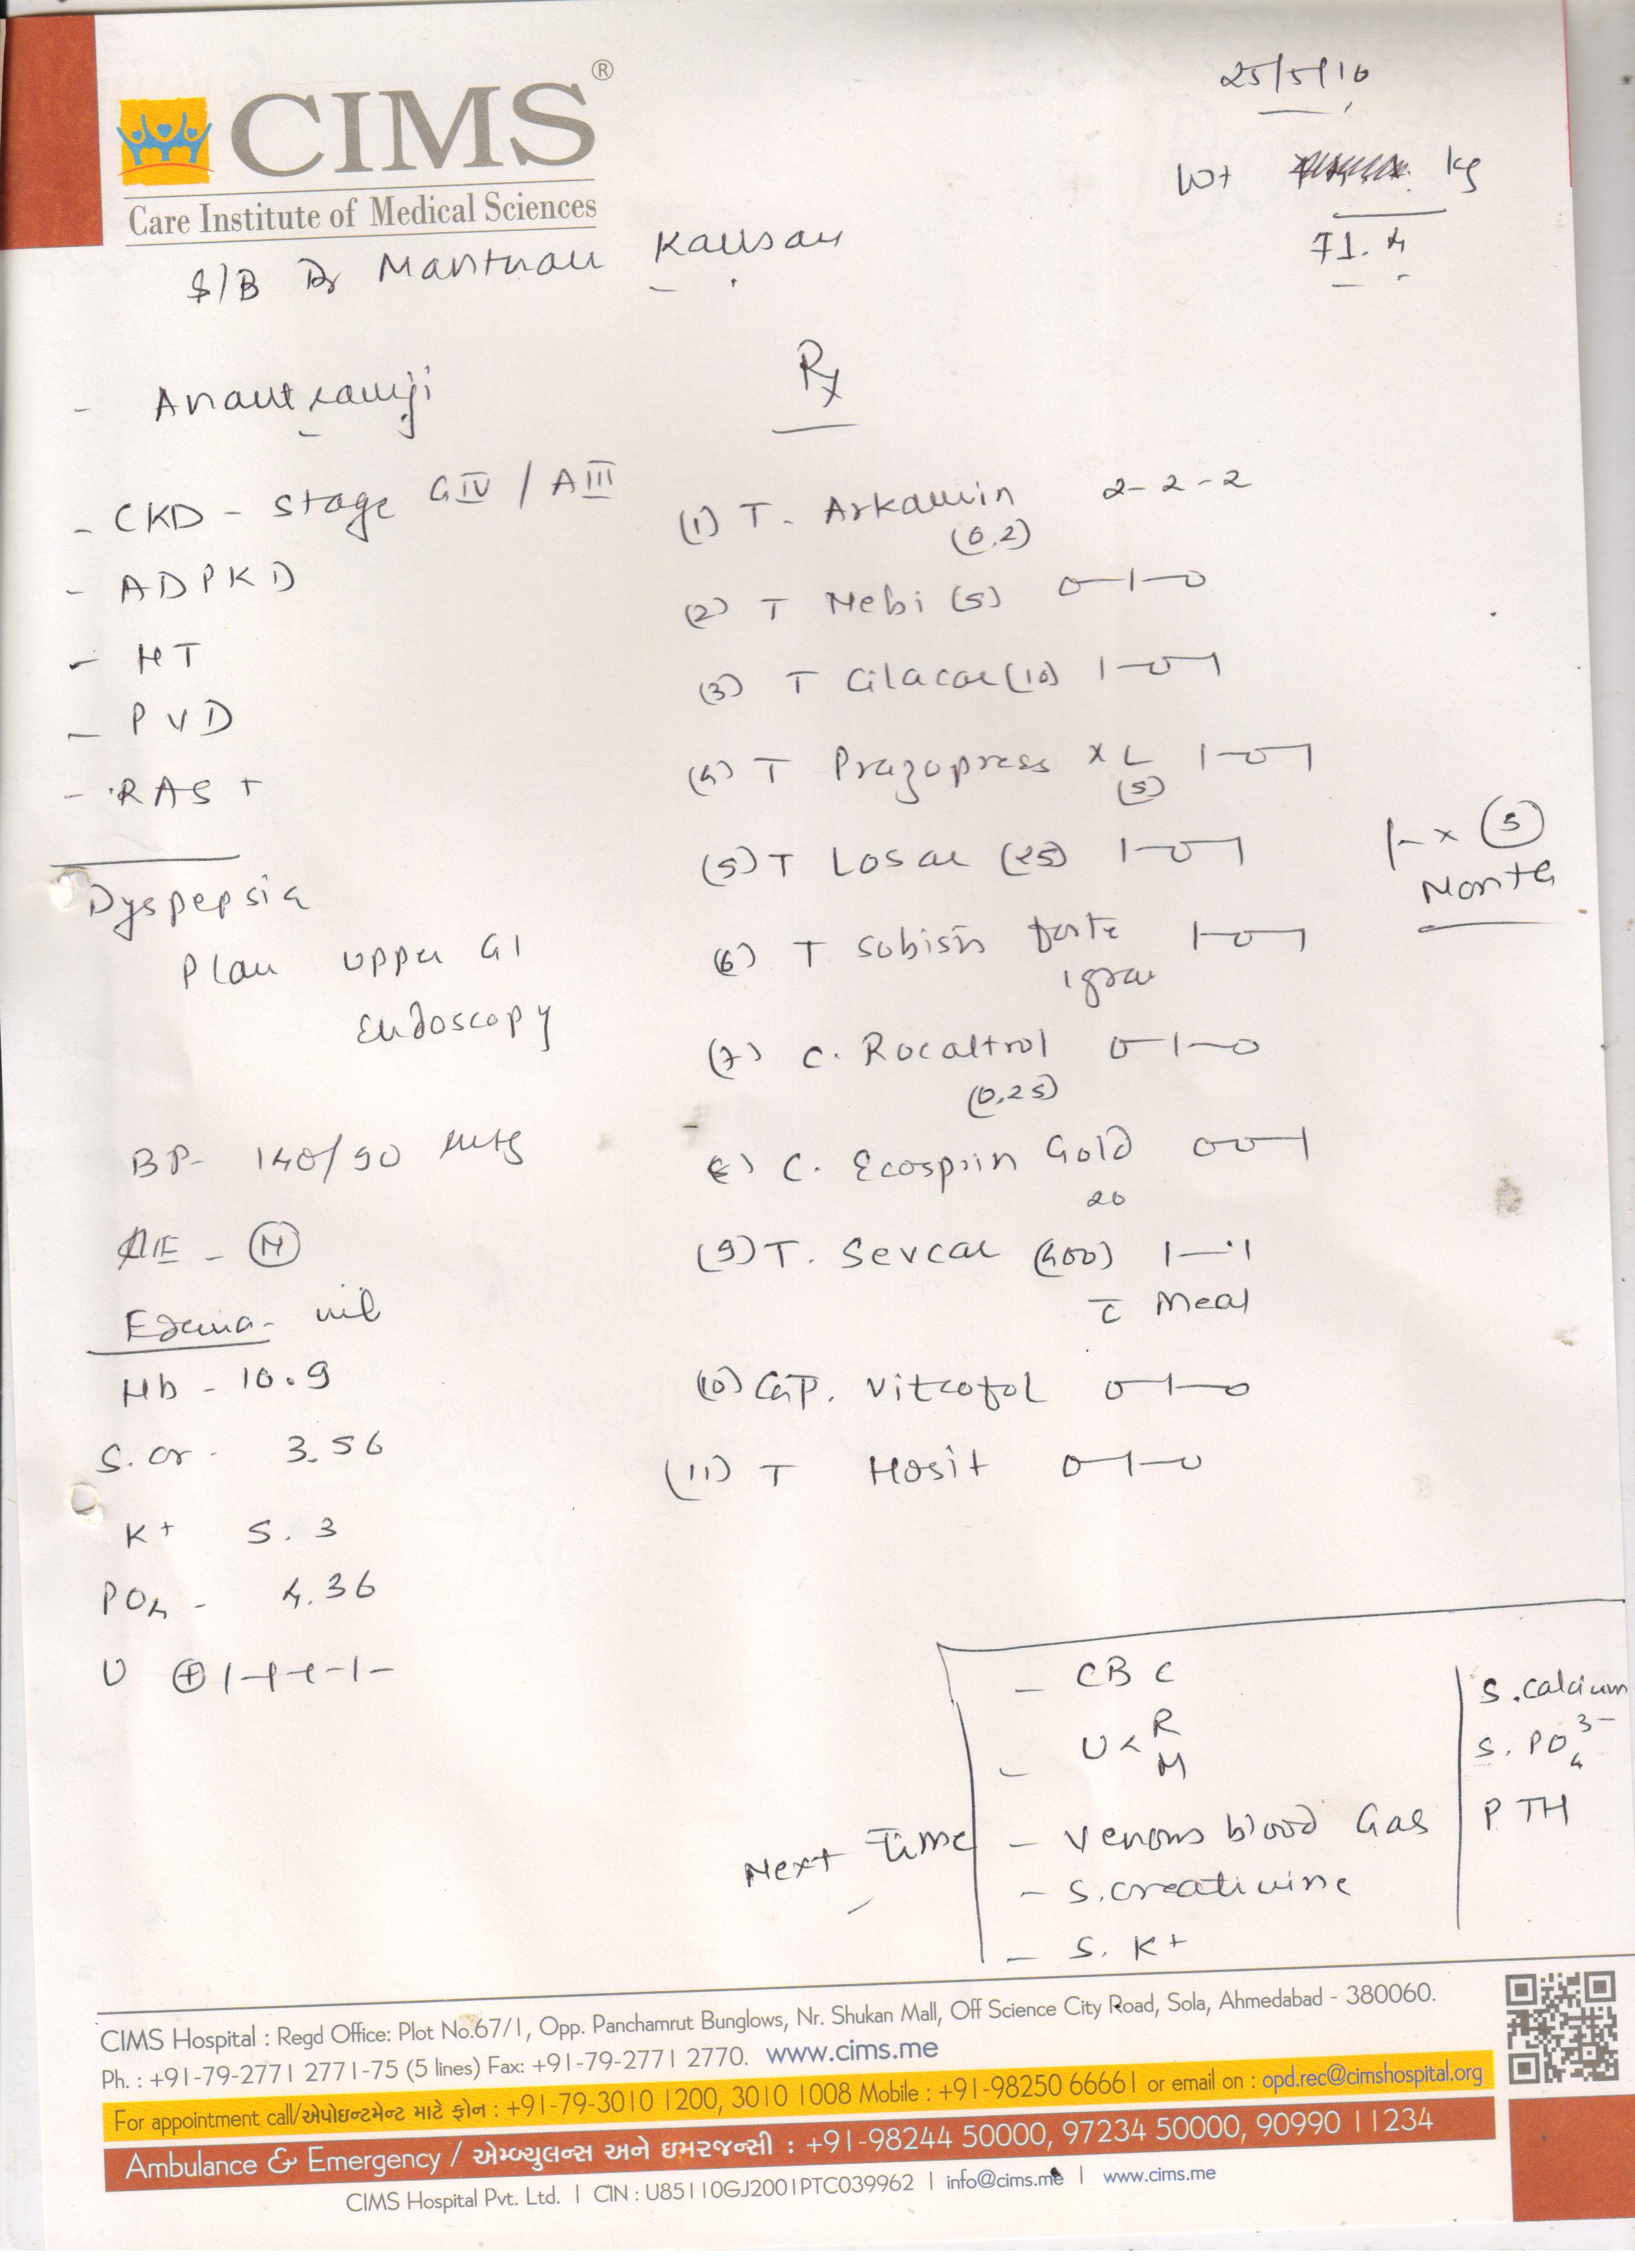 CIMS®
Care Institute of Medical Sciences
25/5/16
Wt kg
71.4
S/B Dr Manthan Kansar
Rx
- Anantramji
- CKD - stage GIV / AIII
- ADPKD
- HT
- PVD
- RAS +
Dyspepsia
Plan upper GI
Endoscopy
BP- 140/90 mmHg
- (N)
Edema - nil
Hb - 10.9
S. cr - 3.56
K+ 5.3
PO4 - 4.36
U ⊕
(1) T. Arkamin 2-2-2
(0.2)
(2) T Nebi (5) 0-1-0
(3) T Cilacar (10) 1-0-1
(4) T Prazopress XL 1-0-1
(5)
(5) T Losar (25) 1-0-1
(6) T Sobisis forte 1-0-1
1gram
(7) C. Rocaltrol 0-1-0
(0.25)
(8) C. Ecosprin Gold 0-0-1
20
(9) T. Sevcar (400) 1-·1
c̄ Meal
(10) Cap. Vitcofol 0-1-0
(11) T Hosit 0-1-0
x (3)
Month
Next Time
- CBC
- U < R
M
- Venous blood Gas
- S. creatinine
- S. K+
S. calcium
S. PO4 3-
PTH
CIMS Hospital : Regd Office: Plot No.67/1, Opp. Panchamrut Bunglows, Nr. Shukan Mall, Off Science City Road, Sola, Ahmedabad - 380060.
Ph. : +91-79-2771 2771-75 (5 lines) Fax: +91-79-2771 2770. www.cims.me
For appointment call/એપોઇન્ટમેન્ટ માટે ફોન : +91-79-3010 1200, 3010 1008 Mobile : +91-98250 66661 or email on : opd.rec@cimshospital.org
Ambulance & Emergency / એમ્બ્યુલન્સ અને ઇમરજન્સી : +91-98244 50000, 97234 50000, 90990 11234
CIMS Hospital Pvt. Ltd. | CIN : U85110GJ2001PTC039962 | info@cims.me | www.cims.me